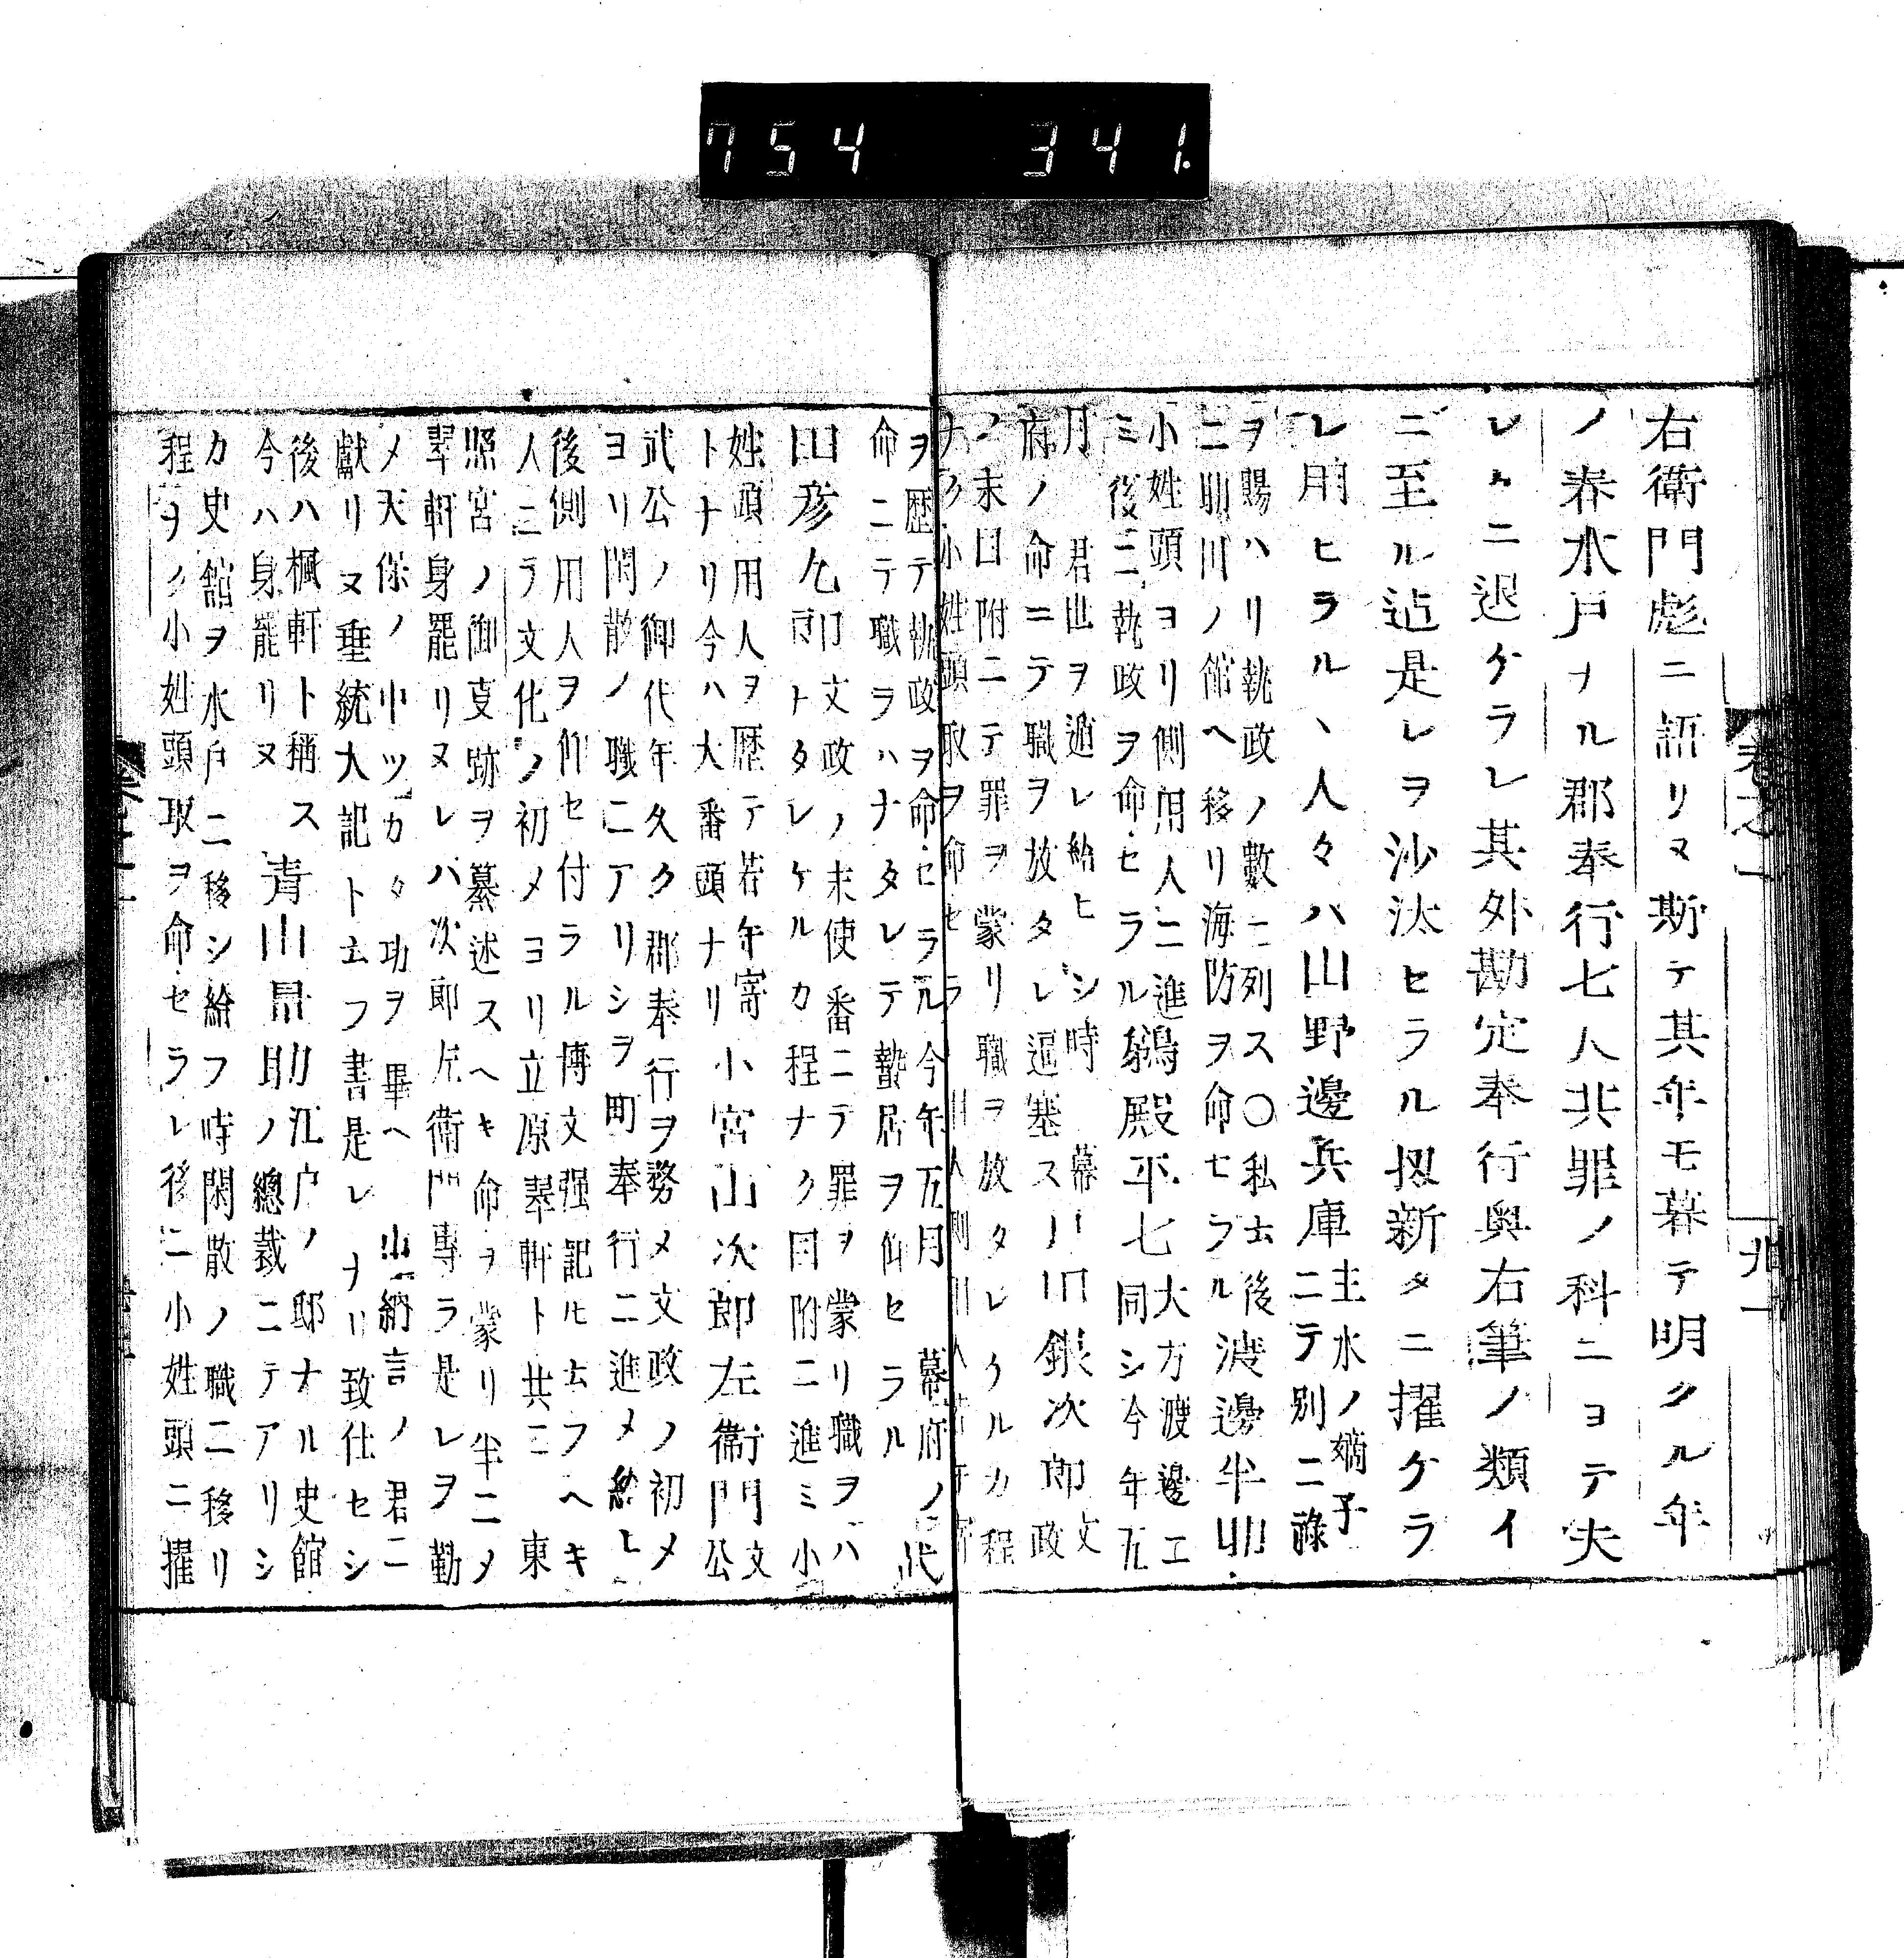 754 341.
右衛門彪ニ語リヌ斯テ其年モ暮テ明クル年
ノ春水戸ナル郡奉行七人共罪ノ科ニヨテ夫
レ〻ニ退ケラレ其外勘定奉行奥右筆ノ類イ
ニ至ル迠是レヲ沙汰セラル扨新タニ擢ケラ
レ用ヒラルヽ人々ハ山野邊兵庫ニテ別ニ祿
主水ノ嫡子
ヲ賜ハリ執政ノ數ニ列ス〇私云後
ニ助川ノ館ヘ移リ海防ヲ命セラル
渡邊半助
小姓頭ヨリ側用人ニ進
ミ後ニ執政ヲ命セラル
鵜殿平七
大方渡邊エ
同シ今年五
月 君世ヲ遁レ給ヒシ時 幕
府ノ命ニテ職ヲ放タレ逼塞ス
戸田銀次郎
文
政
ノ末目附ニテ罪ヲ蒙リ職ヲ放タレタルカ程
ナク小姓頭取ヲ命セラ
ヲ歴テ執政ヲ命セラル今年五月 幕府ノ
命ニテ職ヲハナタレテ蟄居ヲ仰セラル
代
田彦九郎
文政ノ末使番ニテ罪ヲ蒙リ職ヲハ
トタレケルカ程ナク目附ニ進ミ小
姓頭用人ヲ歴テ若年寄
トナリ今ハ大番頭ナリ
小宮山次郎左衞門
文
公
武公ノ御代年久ク郡奉行ヲ務メ文政ノ初メ
ヨリ閑散ノ職ニアリシヲ町奉行ニ進メ給ヒ
後側用人ヲ仰セ付ラル博文强記ヒ云フヘキ
人ニラ文化ノ初メヨリ立原翠軒ト共ニ 東
照宮ノ御夏跡ヲ纂述スヘキ命ヲ蒙リ半ニメ
翠軒身罷リヌレハ次郎左衛門專ラ是レヲ勤
メ天保ノ中ツカタ功ヲ畢ヘ 出納言ノ君ニ
獻リヌ垂統大記ト云フ書是レナリ致仕セシ
後ハ楓軒ト稱ス
今ハ身罷リヌ
青山量助
江戸ノ邸ナル史館
ノ總裁ニテアリシ
カ史舘ヲ水戸ニ移シ給フ時閑散ノ職ニ移リ
程ヲノ小姓頭取ヲ命セラレ後ニ小姓頭ニ擢